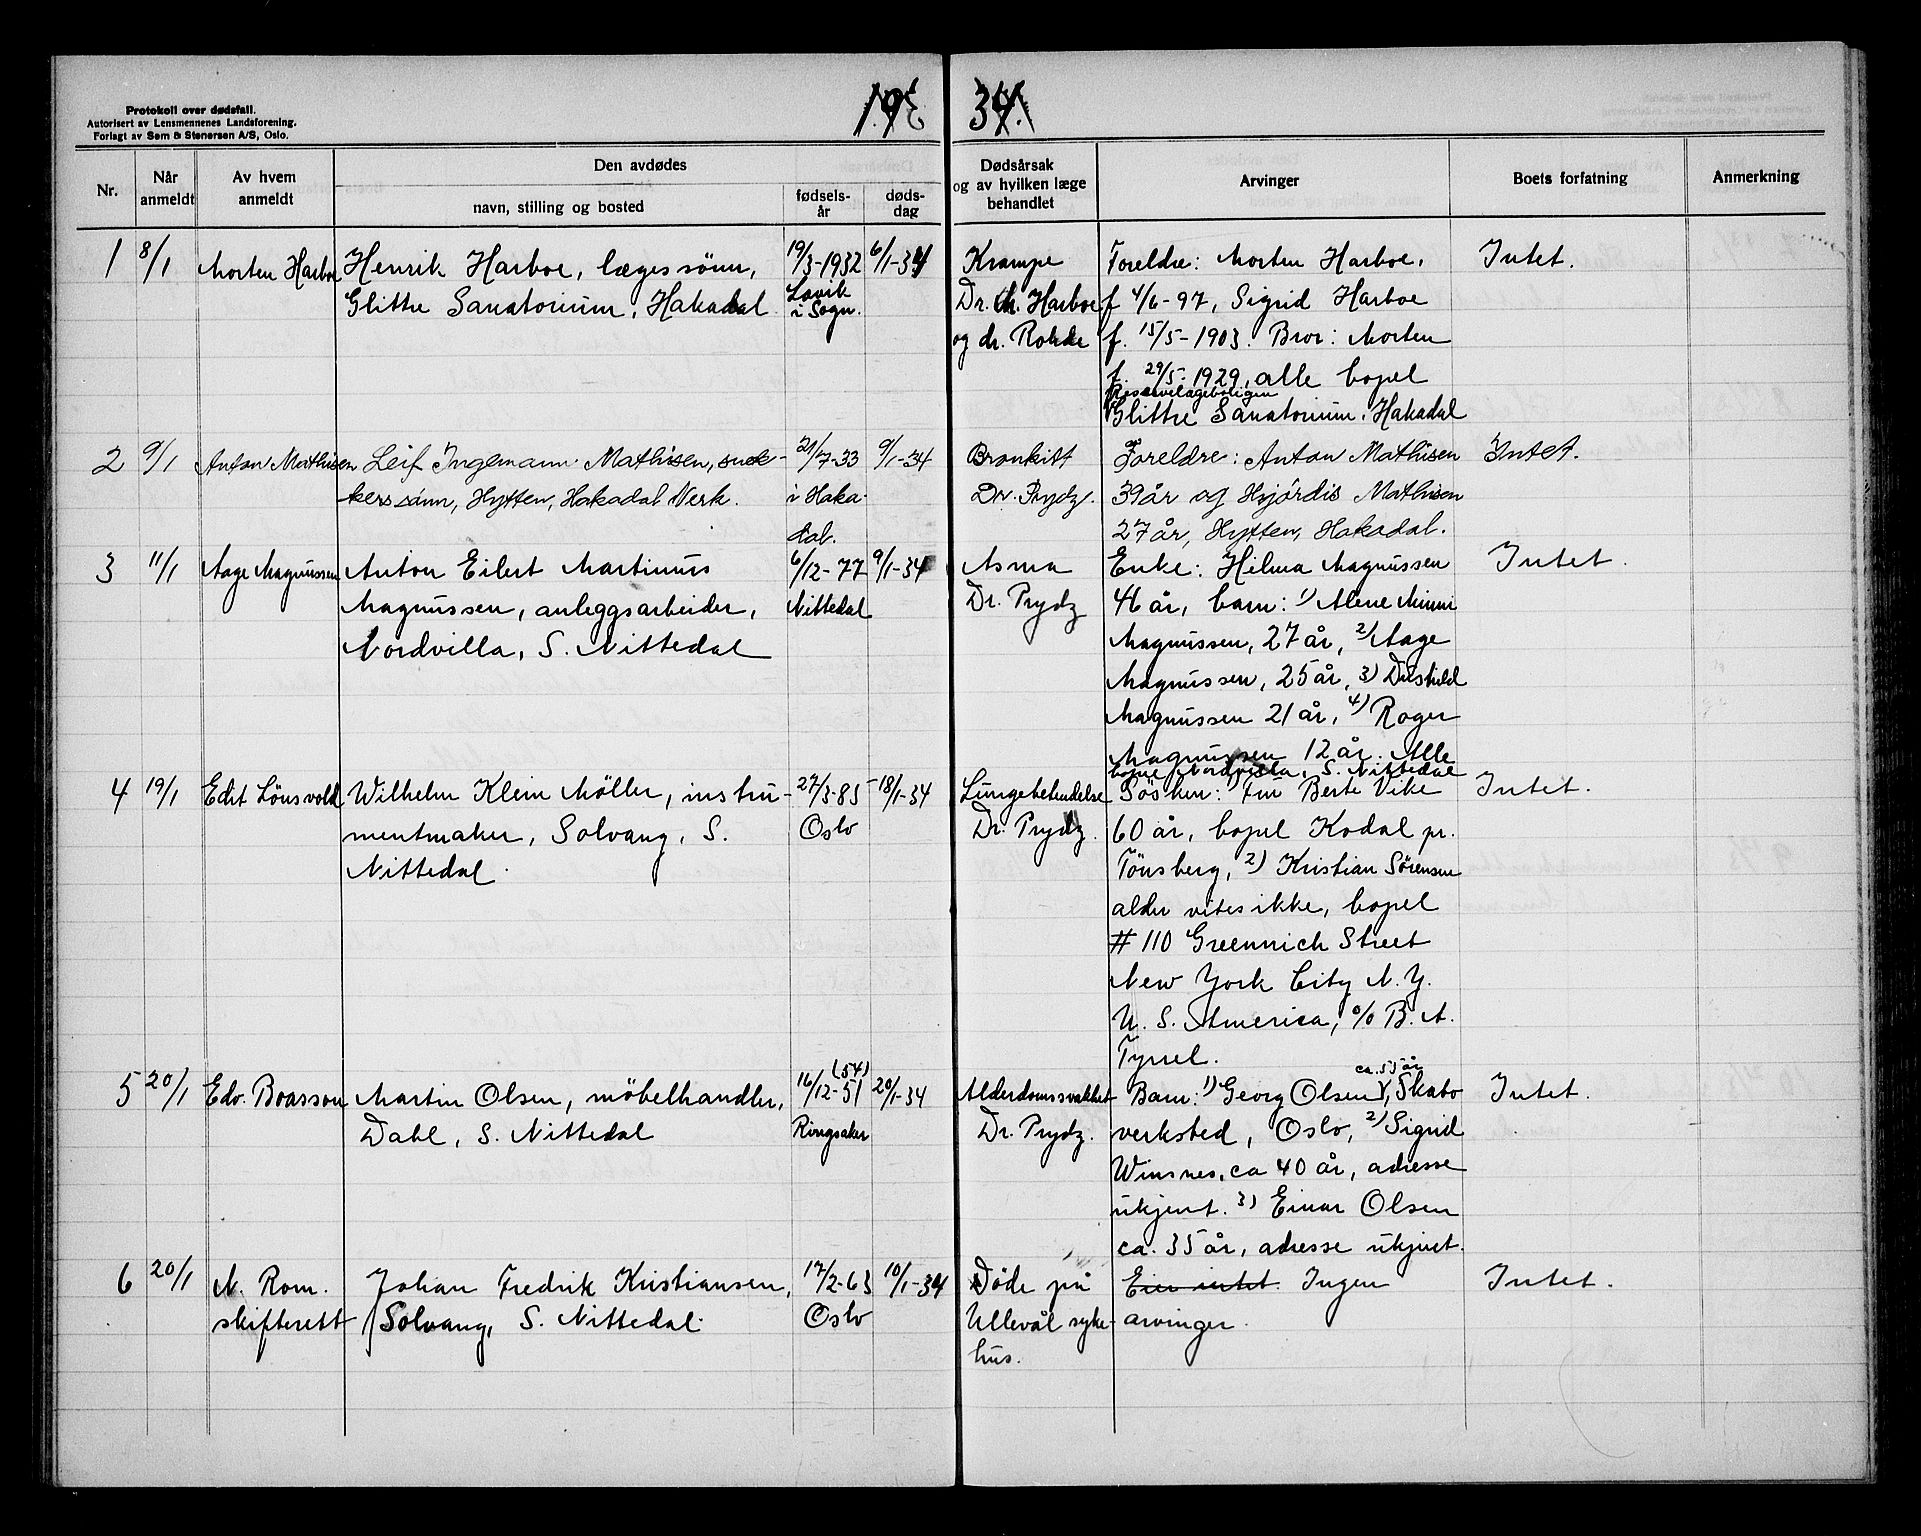 Protokoll over dødsfall.
Autorisert av Lensmennenes Landsforening.
Forlagt av Sem & Stenersen A/S, Oslo.
1934.
Nr.
Når anmeldt
Av hvem anmeldt
Den avdødes
navn, stilling og bosted
fødsels-år
døds-dag
Dødsårsak og av hvilken læge behandlet
Arvinger
Boets forfatning
Anmerkning
1 8/1 Morten Harboe Henrik Harboe, lægessönn, 19/3-1932 6/1-34 Krampe Foreldre: Morten Harboe, Intet.
Glittre Sanatorium, Hakadal Lavik i Sogn. Dr. Harboe f 4/6-97, Sigrid Harboe
og dr. Rohde f. 15/5-1903. Bror: Morten
f. 29/5-1929, alle bopel
Reservelægeboligen
Glittre Sanatorium, Hakadal
2 9/1 Anton Mathisen Leif Ingemann Mathisen, snek- 21/7-33 9/1-34 Bronkitt Foreldre: Anton Mathisen Intet.
kerssönn, Hytten, Hakadal Verk. i Haka- Dr. Prydz. 39 år og Hjördis Mathisen
dal. 27 år, Hytten, Hakadal.
3 11/1 Aage Magnussen Anton Eilert Martinius 6/12-77 9/1-34 Asma Enke: Hilma Magnussen Intet.
Magnussen, anleggsarbeider, Nittedal Dr. Prydz 46 år, barn: 1) Alene Minni
Nordvilla, S. Nittedal Magnussen, 27 år, 2) Aage
Magnussen, 25 år, 3)
Magnussen 21 år, 4) Roger
Magnussen 12 år. Alle
bopel Nordvilla, S. Nittedal
4 19/1 Edit Lönsvold Wilhelm Klein Möller, instru- 27/3-85 18/1-34 Lungebetendelse Sösken: Fru Berte Vike Intet.
mentmaker, Solvang, S. Oslo Dr. Prydz. 60 år, bopel Kodal pr.
Nittedal. Tönsberg, 2) Kristian Sörensen
alder vites ikke, bopel
# 110 Greennich Street
New York City N. Y.
U. S. America, c/o B. A.
Tyrrel.
5 20/1 Edv. Boasson Martin Olsen, möbelhandler, 16/12-51 (54) 20/1-34 Alderdomssvakhet Barn: 1) Georg Olsen ca. 55 år, Skabo Intet.
Dahl, S. Nittedal Ringsaker Dr. Prydz. verksted, Oslo, 2) Sigrid
Winsnes, ca 40 år, adresse
ukjent. 3) Einar Olsen
ca. 35 år, adresse ukjent.
6 20/1 N. Rom. Johan Fredrik Kristiansen, 17/2-63 10/1-34 Döde på Eier intet. Ingen Intet.
skifterett Solvang, S. Nittedal. Oslo Ullevål syke- arvinger.
hus.